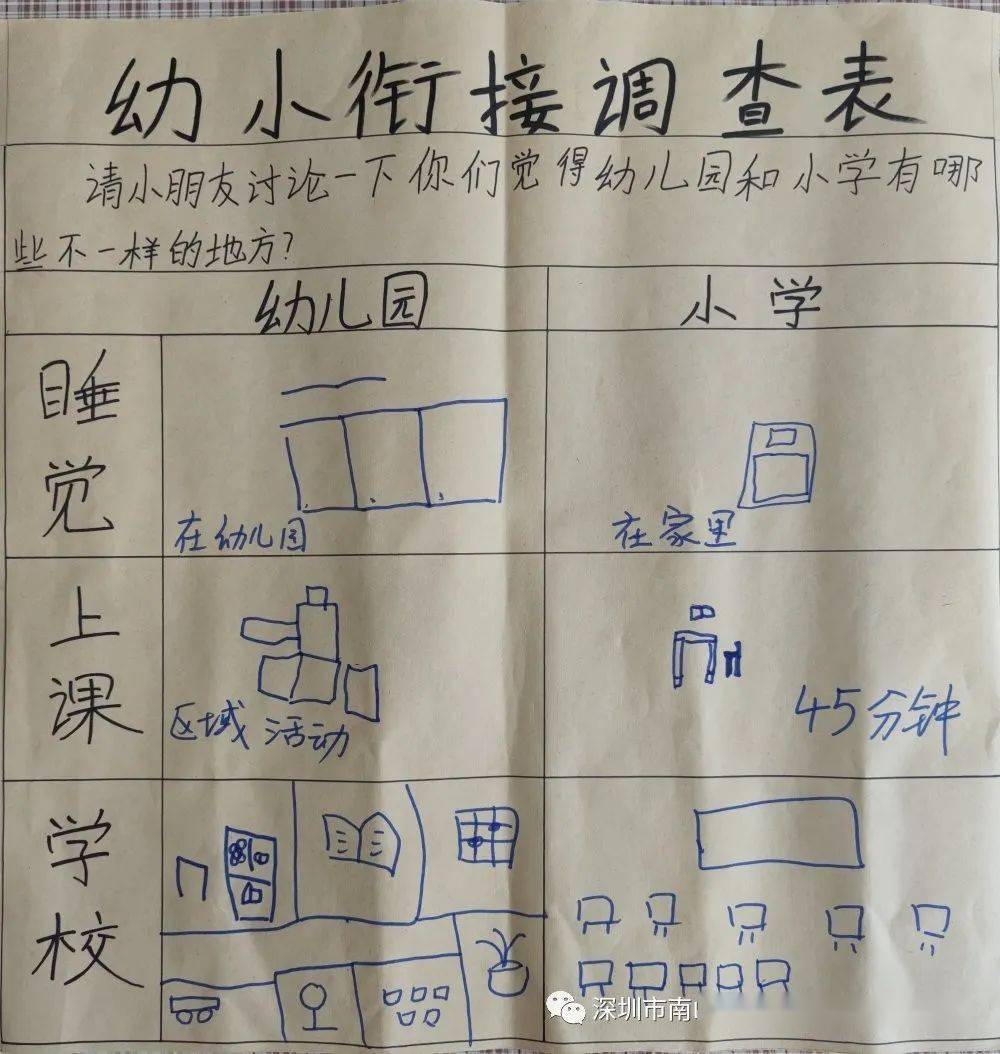 幼小衔接调查表
请小朋友讨论一下你们觉得幼儿园和小学有哪
些不一样的地方?
幼儿园 小学
睡觉
在幼儿园 在家里
上课
区域 活动 45分钟
学校
深圳市南